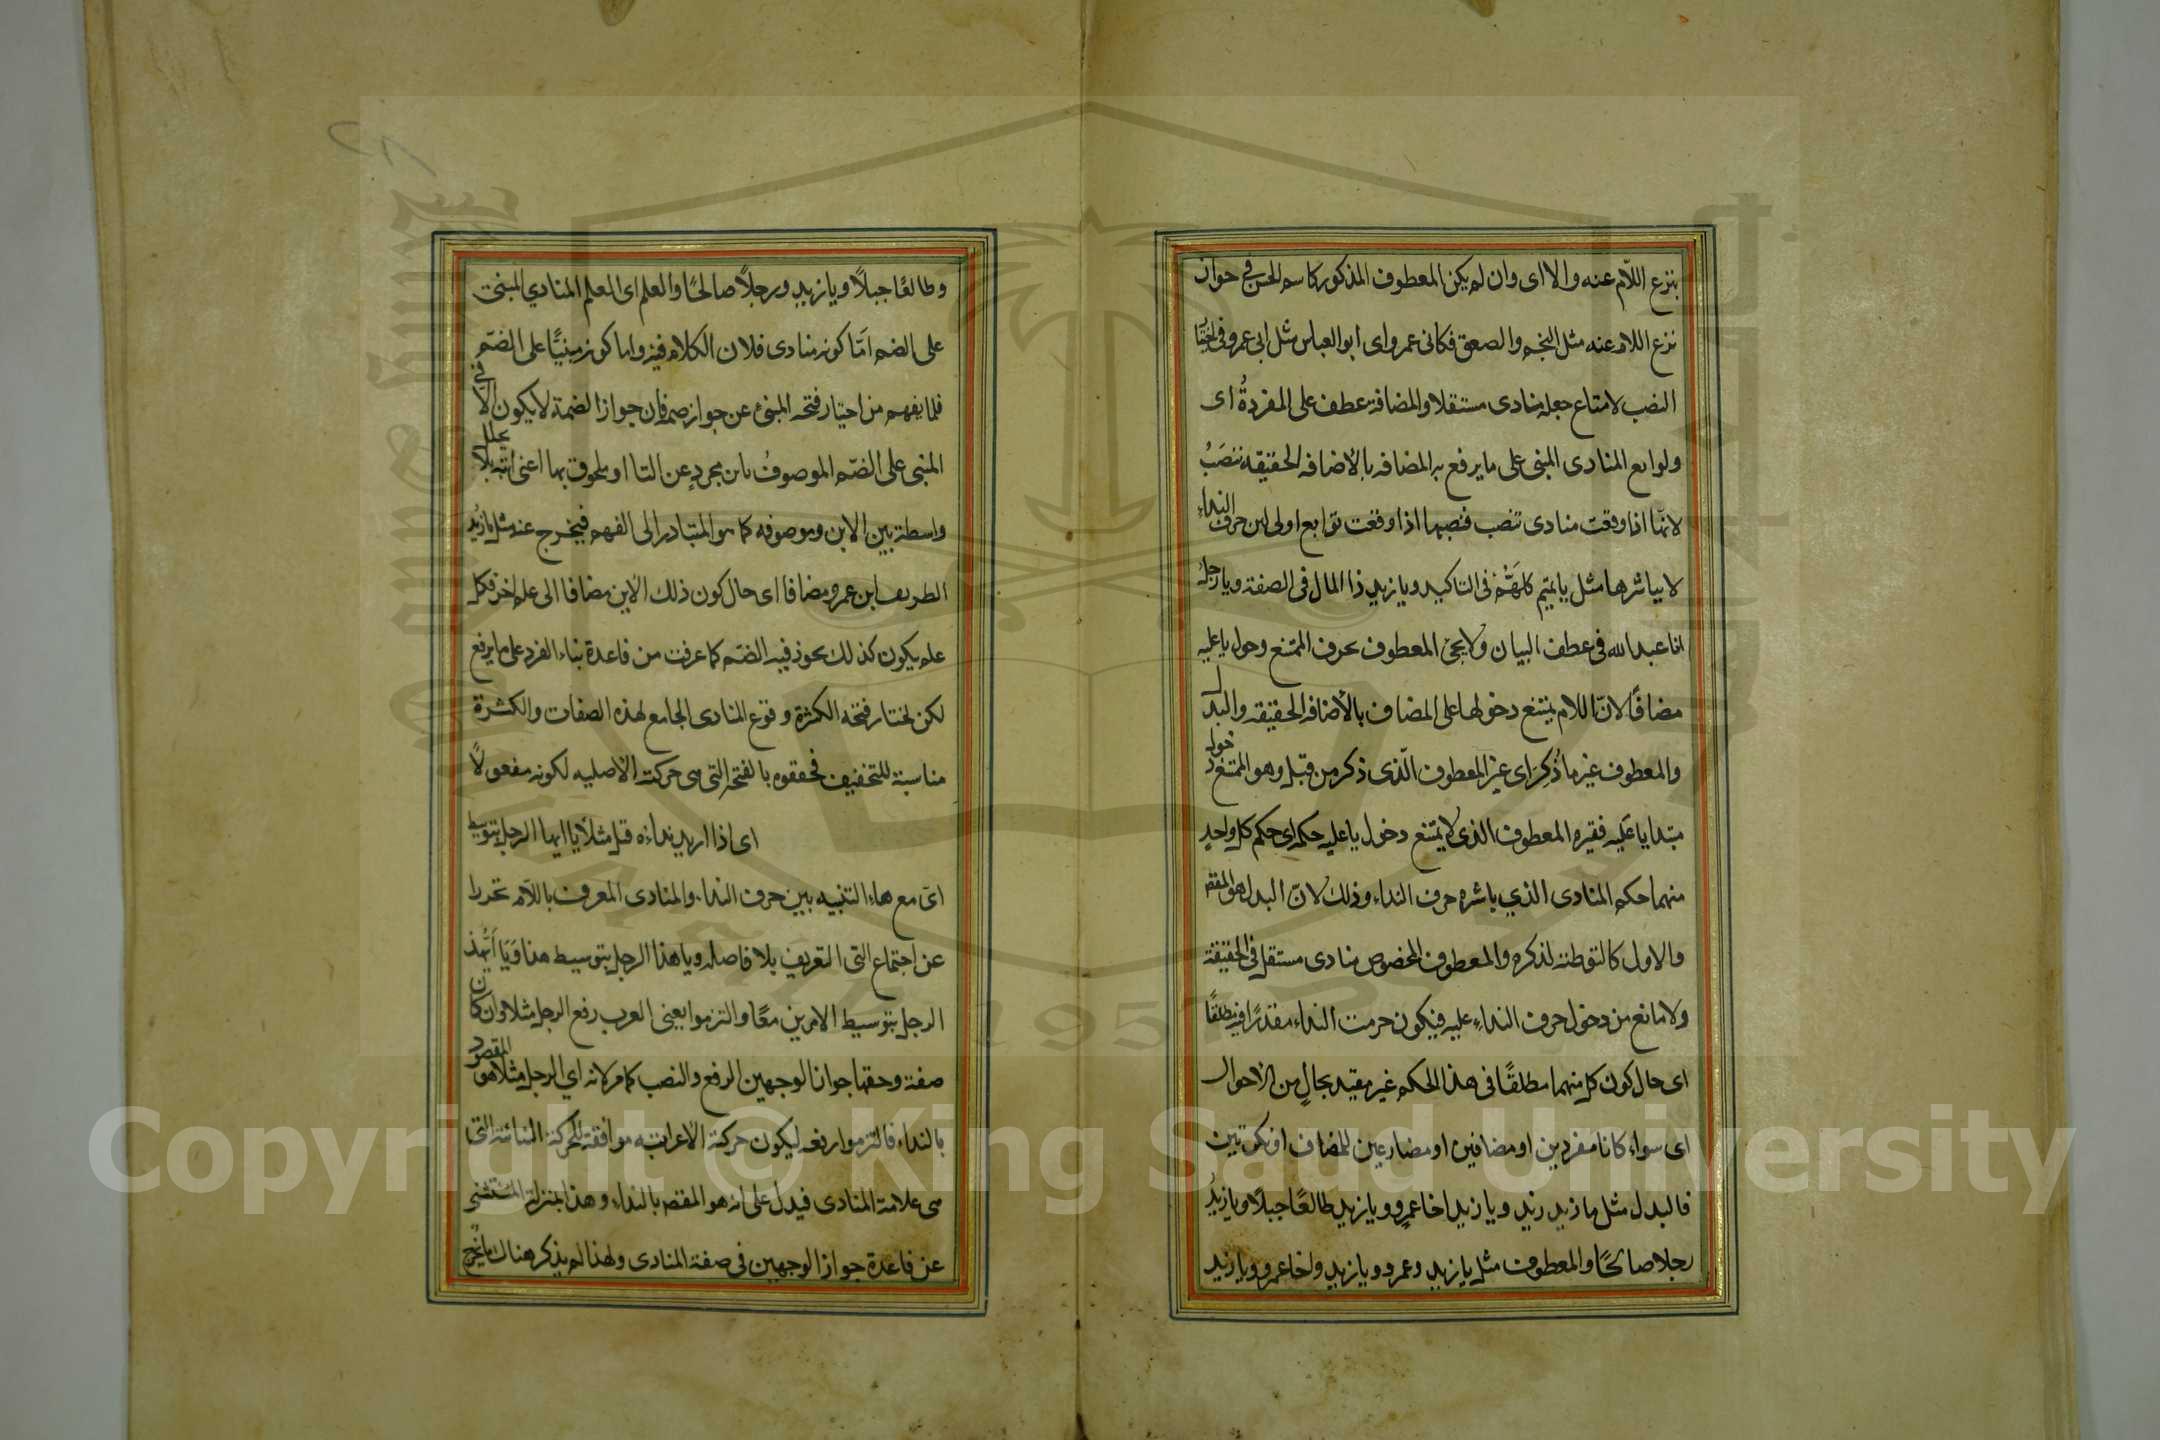 بنزع اللّام عنه والا اى وان لم يكن المعطوف المذكور كاسم الحسن فى جواز
نزع اللام عنه مثل النجم والصعق فكابى عمرو اى ابو العباس مثل ابى عمرو فى اختيار
النصب لامتناع جعله منادى مستقلا والمضافة عطف على المفردةُ اى
وتوابع المنادى المبنى على ما يرفع به المضافه بالأضافه الحقيقه تنصَبُ
لانّها اذا وقعت منادى تنصب فنصبها اذا وقعت توابع اولى لان حرف النداء
لا يباشرها مثل يا تميم كلهَّمْ فى التاكيد ويا زيد ذا المال فى الصفة ويا رجل
ابا عبد الله فى عطف البيان ولا يجئ المعطوف بحرف الممتنع دخول يا عليه
مضافًا لانّ اللام يمتنع دخولها على المضاف بالأضافه الحقيقه والبدل
والمعطوف غير ما ذُكِرَ اى غير المعطوف الّذى ذكر من قبل وهو الممتنع دخول
يا عليه فغيره المعطوف الذى لا يمتنع دخول يا عليه حكمه اى حكم كل واحدٍ
منهما حكم المنادى الذي باشره حرف النداء وذلك لانّ البدل هو المقصـ
والاول كالتوطئة لذكره والمعطوف المخصوص منادى مستقل فى الحقيقة
ولا مانع من دخول حرف النداءِ عليه فيكون حرف النداء مقدرًا فيه مطلقًا
اى حال كون كل منهما مطلقًا فى هذا الحكم غير مقيد بحالٍ من الاحوال
اى سواء كانا مفردين او مضافين او مضارعين للمضاف او نكرتين
فالبدل مثل يا زيد زيد ويا زيد اخا عمرٍو ويا زيد طالعًا جبلًا ويا زيدُ
رجلا صالحًا والمعطوف مثل يا زيد وعمرو ويا زيد واخا عمرو ويا زيد
وطالعًا جبلًا ويا زيد ورجلًا صالحًا والعلم اى العلم المنادي المبنى
على الضم امّا كونه منادى فلان الكلام فيه واما كونه مبنيًّا على الضّم
فلما يفهم من اختيار فتحه المبنئ عن جواز ضمه فان جواز الضمة لا يكون الّا فى
المبنى على الضّم الموصوفُ بابن مجردٍ عن التا او ملحوق بها اعنى ابنه بلا تخلل
واسطة بين الابن وموصوفه كما هو المتبادر الى الفهم فيخرج عنه مثل يا زيد
الظريف ابن عمرو مضافا اى حال كون ذلك الابن مضافا الى علم اخر فكل
علم يكون كذلك يجوز فيه الضّم كما عرفت من قاعدة بناء المفرد على ما يرفع
لكن يختار فتحه الكثرة وقوع المنادى الجامع لهذه الصفات والكثرة
مناسبة للتخفيف فخففوه بالفتحه التى هى حركته الاصليه لكونه مفعولًا
اى اذا اريد نداءه قيل مثلًا يا ايها الرجل بتوسيط
اىّ مع هاء التنبيه بين حرف النداء والمنادى المعرف باللّام تحررا
عن اجتماع التى التعريف بلا فاصله ويا هذا الرجل بتوسيط هذا ويَا اَيُّهذا
الرجل بتوسيط الامرين معًا والتزموا يعنى العرب رفع الرجل مثلا وان كان
صفة وحقها جواز الوجهين الرفع والنصب كما مر لانه اي الرجل مثلا هو المقصود
بالنداء فالتزموا رفعه ليكون حركة الاعرابيه موافقة للحركة البنائية التى
هى علامة المنادى فيدل على انه هو المقصـ بالنداء وهذا بمنزلة المستثنى
عن قاعدة جواز الوجهين فى صفة المنادى ولهذا لم يذكر هناك ما يخرج
1957
Copyright © King Saud University